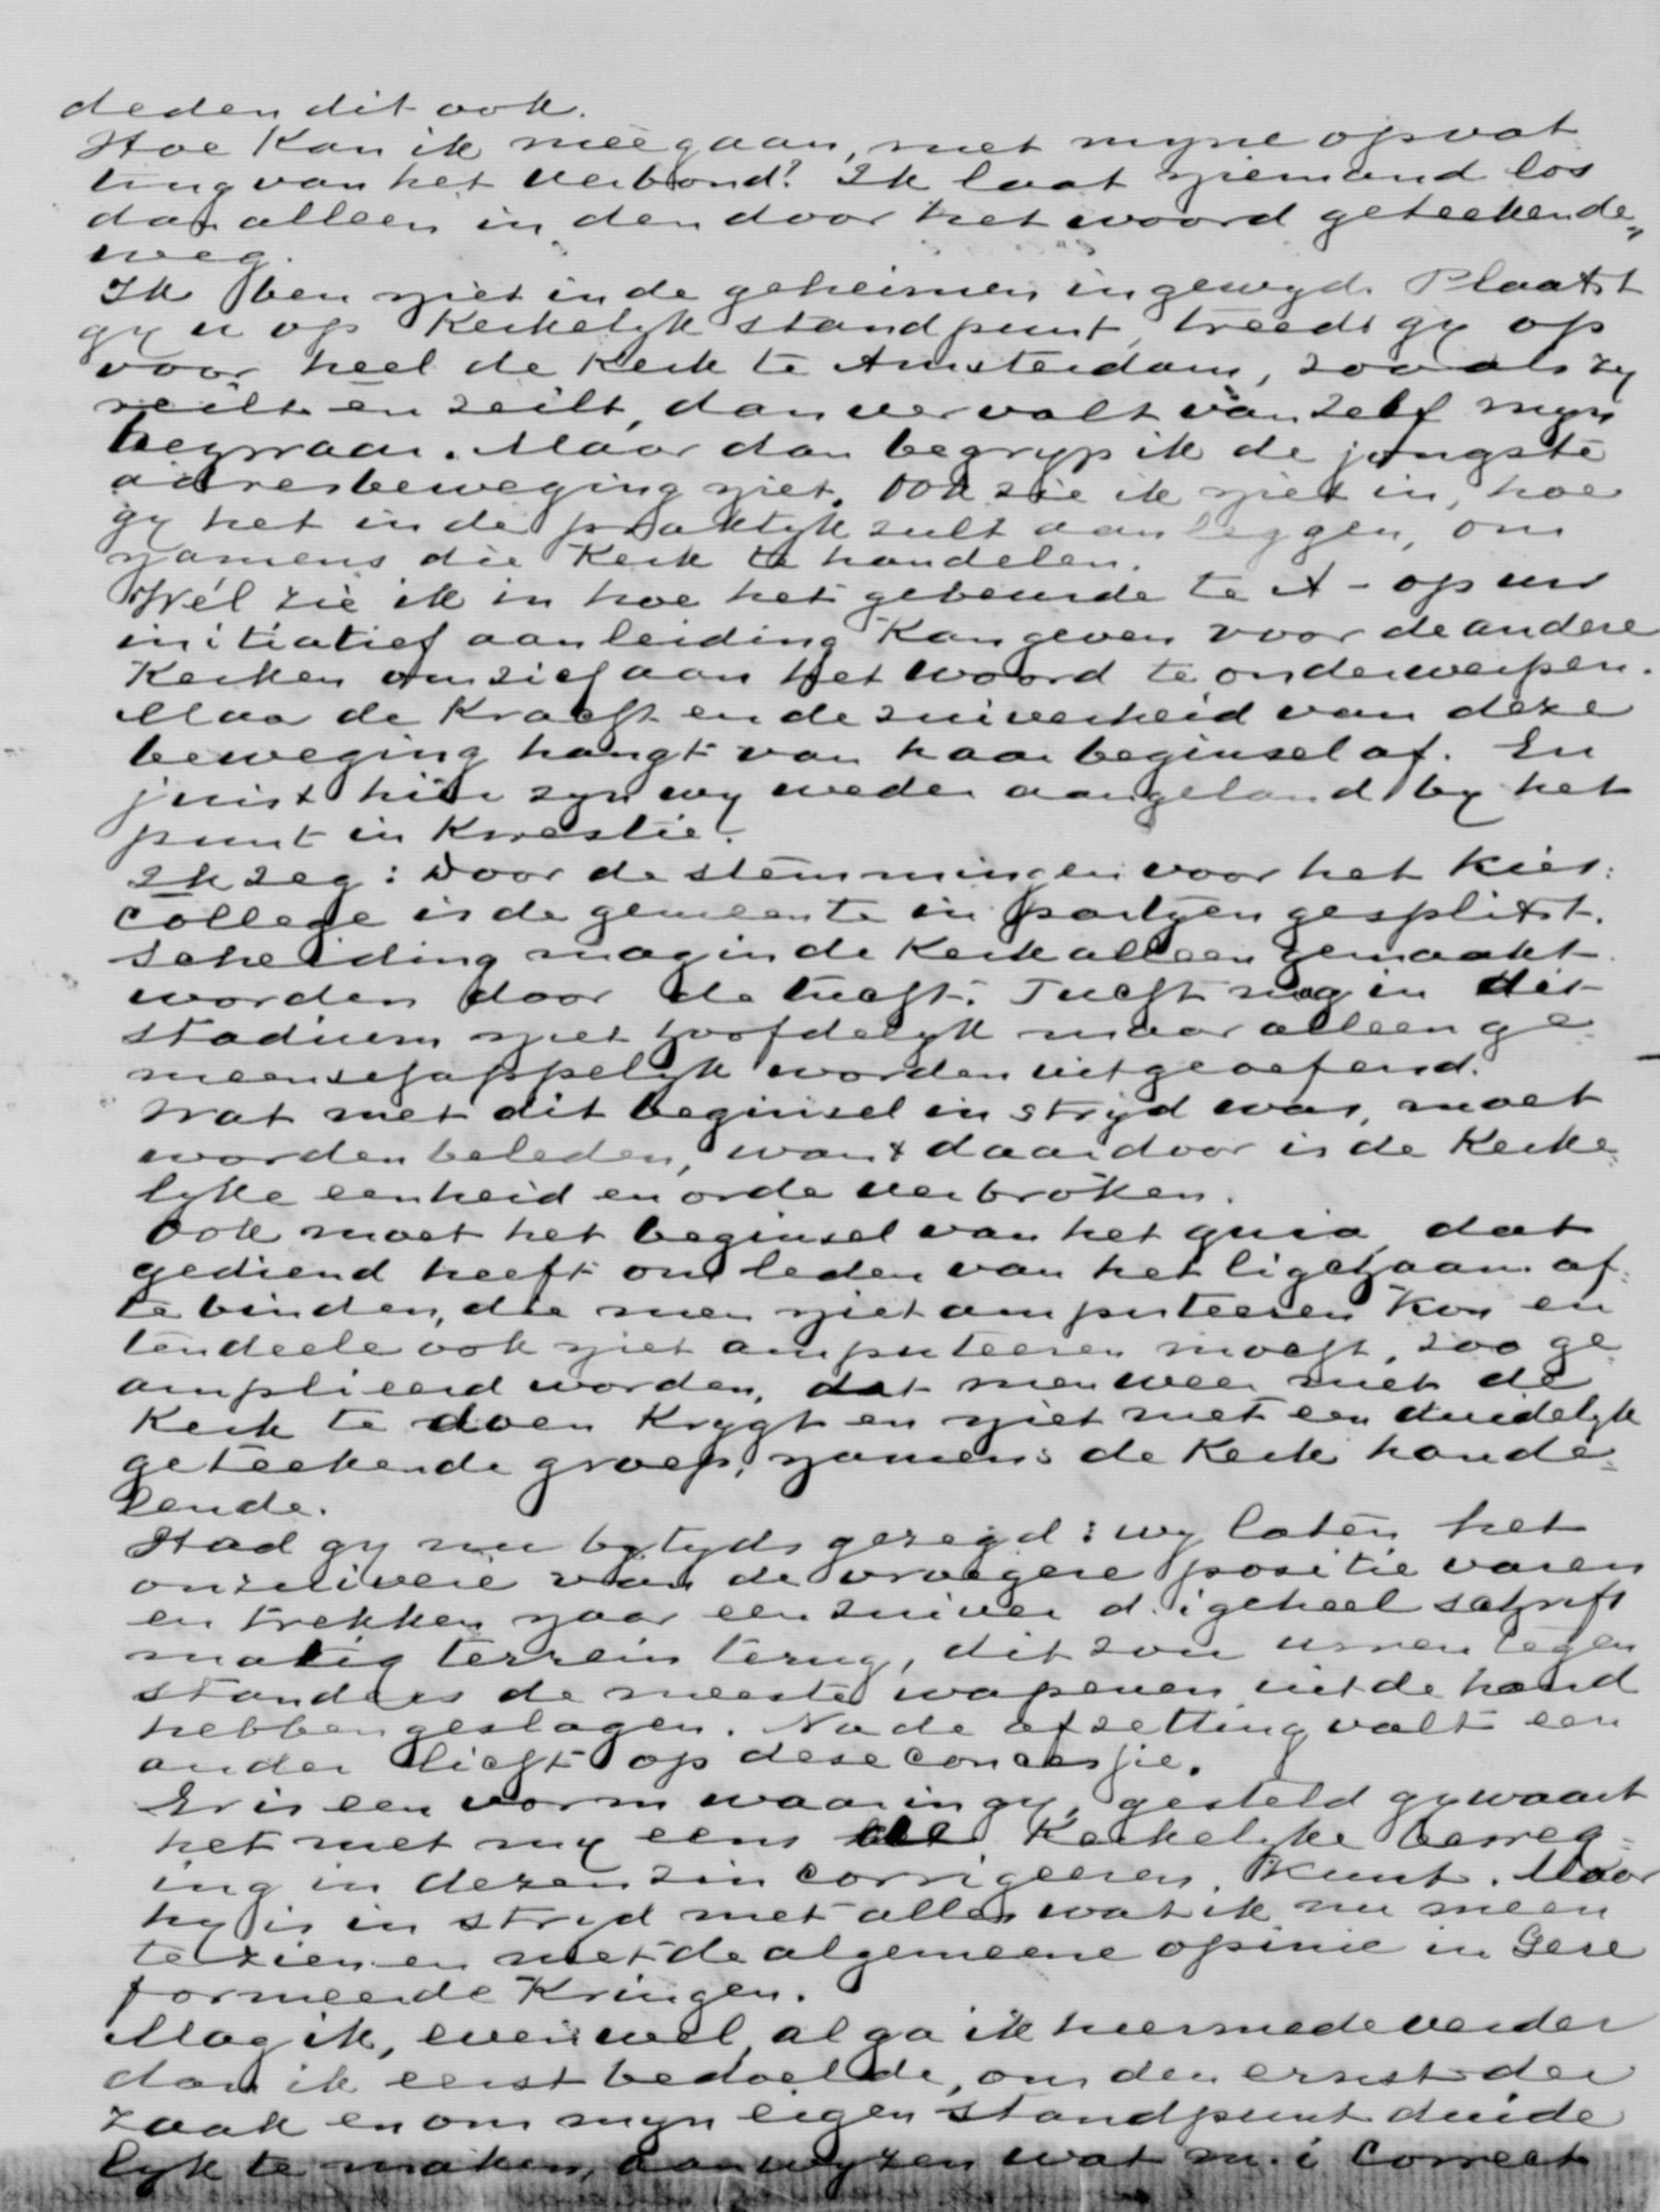 deden dit ook.
Hoe kan ik meêgaan, met myne opvat
ting van het verbond? Ik laat niemand los
dan alleen in den door het woord geteekende„
weg.
Ik ben niet in de geheimen ingewyd. Plaatst
gy u op Kerkelyk standpunt, treedt gy op
voor heel de Kerk te Amsterdam, zooals zy
reilt en zeilt, dan vervalt van zelf myn
bezwaar. Maar dan begryp ik de jongste
adresbeweging niet. Ook zie ik niet in, hoe
gy het in de praktyk zult aanleggen, om
namens die Kerk te handelen.
Wél zie ik in hoe het gebeurde te A - op uw
initiatief aanleiding kan geven voor de andere
Kerken om zich aan het woord te onderwerpen.
Maar de Kracht en de zuiverheid van deze
beweging hangt van haar beginsel af. En
juist hier zyn wy weder aangeland by het
punt in Kwestie.
Ik zeg: Door de stemmingen voor het Kies:
college is de gemeente in partyen gesplitst.
Scheiding mag in de Kerk alleen gemaakt
worden door de tucht. Tucht mag in dit
stadium niet hoofdelyk maar alleen ge
meenschappelyk worden uitgeoefend.
Wat met dit beginsel in stryd was, moet
worden beleden, want daardoor is de Kerke
lyke eenheid en orde verbroken.
Ook moet het beginsel van het quia, dat
gediend heeft om leden van het lichaam af:
te binden, die men niet amputeeren kon en
tendeele ook niet amputeeren mocht, zoo ge
ampliceerd worden, dat men weer met de
Kerk te doen krygt en niet met een duidelyk
geteekende groep, namens de Kerk hande=
lende.
Had gy nu bytyds gezegd: wy laten het
onzuivere van de vroegere positie varen
en trekken naar een zuiver d. i geheel schrift
matig terrein terug, dit zou uwen tegen
standers de meeste wapenen uit de hand
hebben geslagen. Na de afzetting valt een
ander licht op deze concessie.
Er is een vorm waarin gy, gesteld gy waart
het met my eens Kerkelyke beweg=
ing in dezen zin corrigeeren kunt. Maar
hy is in stryd met alles wat ik nu meen
te zien en met de algemeene opinie in Gere
formeerde Kringen.
Mag ik, evenwel, al ga ik hiermede verder
dan ik eerst bedoelde, om den ernst der
zaak en om myn eigen standpunt duide
lyk te maken, aanwyzen wat m. i correct